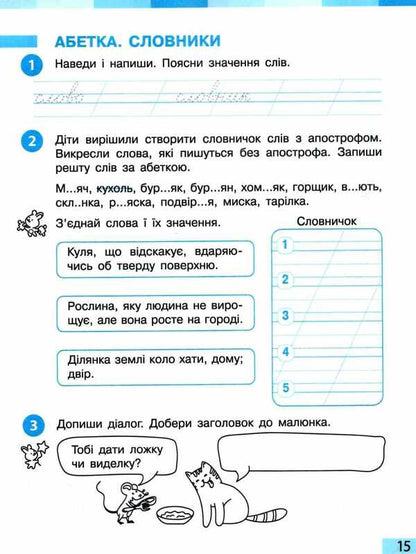 АБЕТКА. СЛОВНИКИ
1 Наведи і напиши. Поясни значення слів.
слово словник
2 Діти вирішили створити словничок слів з апострофом.
Викресли слова, які пишуться без апострофа. Запиши
решту слів за абеткою.
М...яч, кухоль, бур...як, бур...ян, хом...як, горщик, в...ють,
скл..нка, р...яска, подвір...я, миска, тарілка.
З'єднай слова ї їх значення.
Словничок
Куля, що відскакує, вдаряю-
чись об тверду поверхню.
Рослина, яку людина не виро-
щує, але вона росте на городі.
Ділянка землі коло хати, дому;
двір.
1
2
3
4
5
3 Допиши діалог. Добери заголовок до малюнка.
Тобі дати ложку
чи виделку?
15